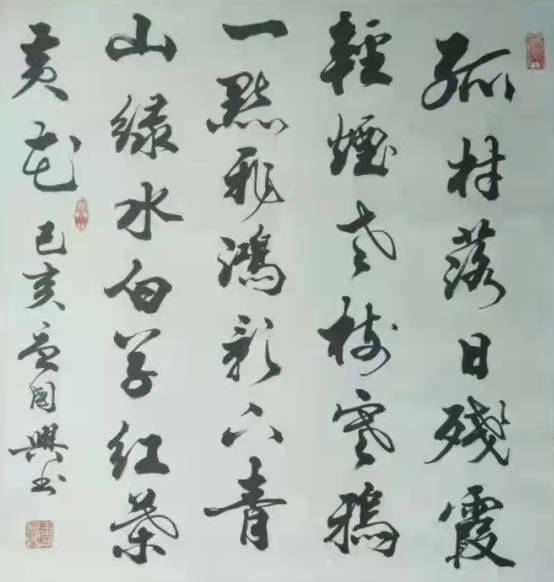 孤村落日殘霞
輕煙老樹寒鴉
一點飛鴻影下青
山綠水白草紅葉
黃花
己亥 國興书